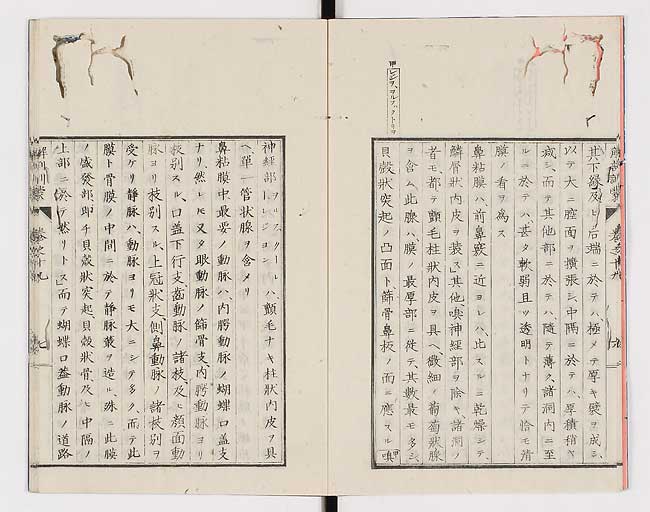 其下縁及ヒ后端ニ於テハ極メテ厚キ襞ヲ成シ
以テ大ニ腔面ヲ擴張シ中隅ニ於テハ厚積稍々
減シ而テ其他部ニ於テハ隨テ薄ク諸洞内ニ至
ルニ於テハ甚タ軟弱且ツ透明トナリテ恰モ清
膜ノ看ヲ為ス
鼻粘膜ハ前鼻竅ニ近ヨレハ此スルニ乾燥シテ
鱗屑状内皮ヲ装ス」其他嗅神経部ヲ除キ諸洞ノ
者モ都テ顫毛柱状内皮ヲ具ヘ微細ノ葡萄状腺
ヲ含ム此腺ハ膜ノ最厚部ニ従テ其數最モ多シ
貝殻状突起ノ凸面ト篩骨鼻板ノ面ニ應スル嗅
神経部ハ顫毛ナキ柱状内皮ヲ具
ヘ單一管状腺ヲ含メリ
鼻粘膜中最要ノ動脉ハ内腭動脉ノ蝴蝶口盖支
ナリ然レ𪜈又タ眼動脉ノ篩骨支内腭動脉ヨリ
枝別スル口盖下行支齒動脉ノ諸枝及ヒ顔面動
脉ヨリ枝別スル上冠状支側鼻動脉ノ諸枝別ヲ
受ケリ静脉ハ動脉ヨリモ大ニシテ多ク而テ此
膜ト骨膜ノ中間ニ於テ静脉叢ヲ造ル殊ニ此膜
ノ盛發部即チ貝殻状突起貝殻状骨及ヒ中隅ノ
上部ニ於テ然リトス」而テ蝴蝶口盖動脉ノ道路